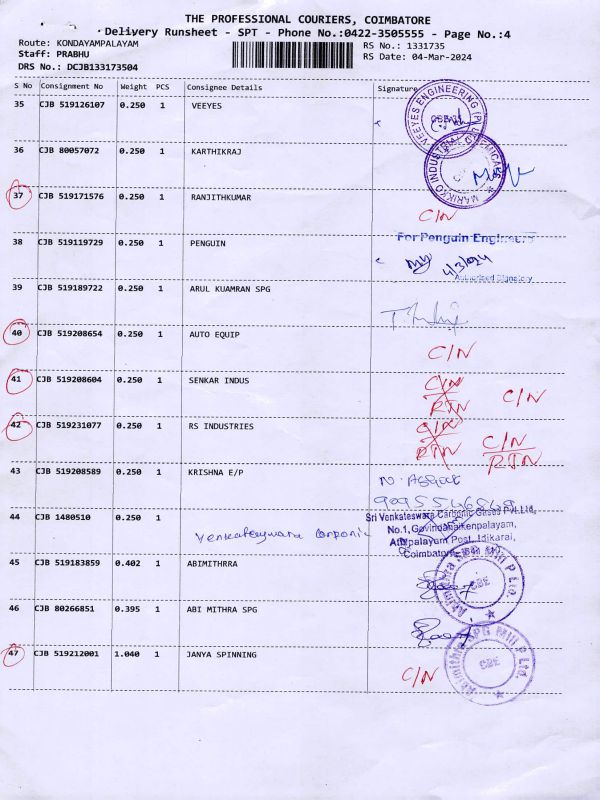 THE PROFESSIONAL COURIERS, COIMBATORE
Delivery Runsheet - SPT - Phone No.:0422-3505555 - Page No.:4
Route: KONDAYAMPALAYAM RS No.: 1331735
Staff: PRABHU RS Date: 04-Mar-2024
DRS No.: DCJB133173504
S No Consignment No Weight PCS Consignee Details Signature
35 CJB 519126107 0.250 1 VEEYES
VEEYES ENGINEERING (P) LTD
36 CJB 80057072 0.250 1 KARTHIKRAJ
MARIKKO INDUSTRIAL
37 CJB 519171576 0.250 1 RANJITHKUMAR
C/N
38 CJB 519119729 0.250 1 PENGUIN
For Penguin Engineers
4/3/24
Authorised Signatory
39 CJB 519189722 0.250 1 ARUL KUAMRAN SPG
40 CJB 519208654 0.250 1 AUTO EQUIP
C/N
41 CJB 519208604 0.250 1 SENKAR INDUS
C/N C/N
RTN
42 CJB 519231077 0.250 1 RS INDUSTRIES
C/N C/N
RTN RTN
43 CJB 519208589 0.250 1 KRISHNA E/P
44 CJB 1480510 0.250 1
Venkateswara Carbonic
Sri Venkateswara Carbonic Gases Pvt.Ltd,
No.1, Govindanaikenpalayam,
Athipalayam Post, Idikarai,
Coimbatore
45 CJB 519183859 0.402 1 ABIMITHRRA
Abimithra SPG Mill P Ltd.
CBE
46 CJB 80266851 0.395 1 ABI MITHRA SPG
Abimithra SPG Mill P Ltd.
CBE
47 CJB 519212001 1.040 1 JANYA SPINNING
C/N